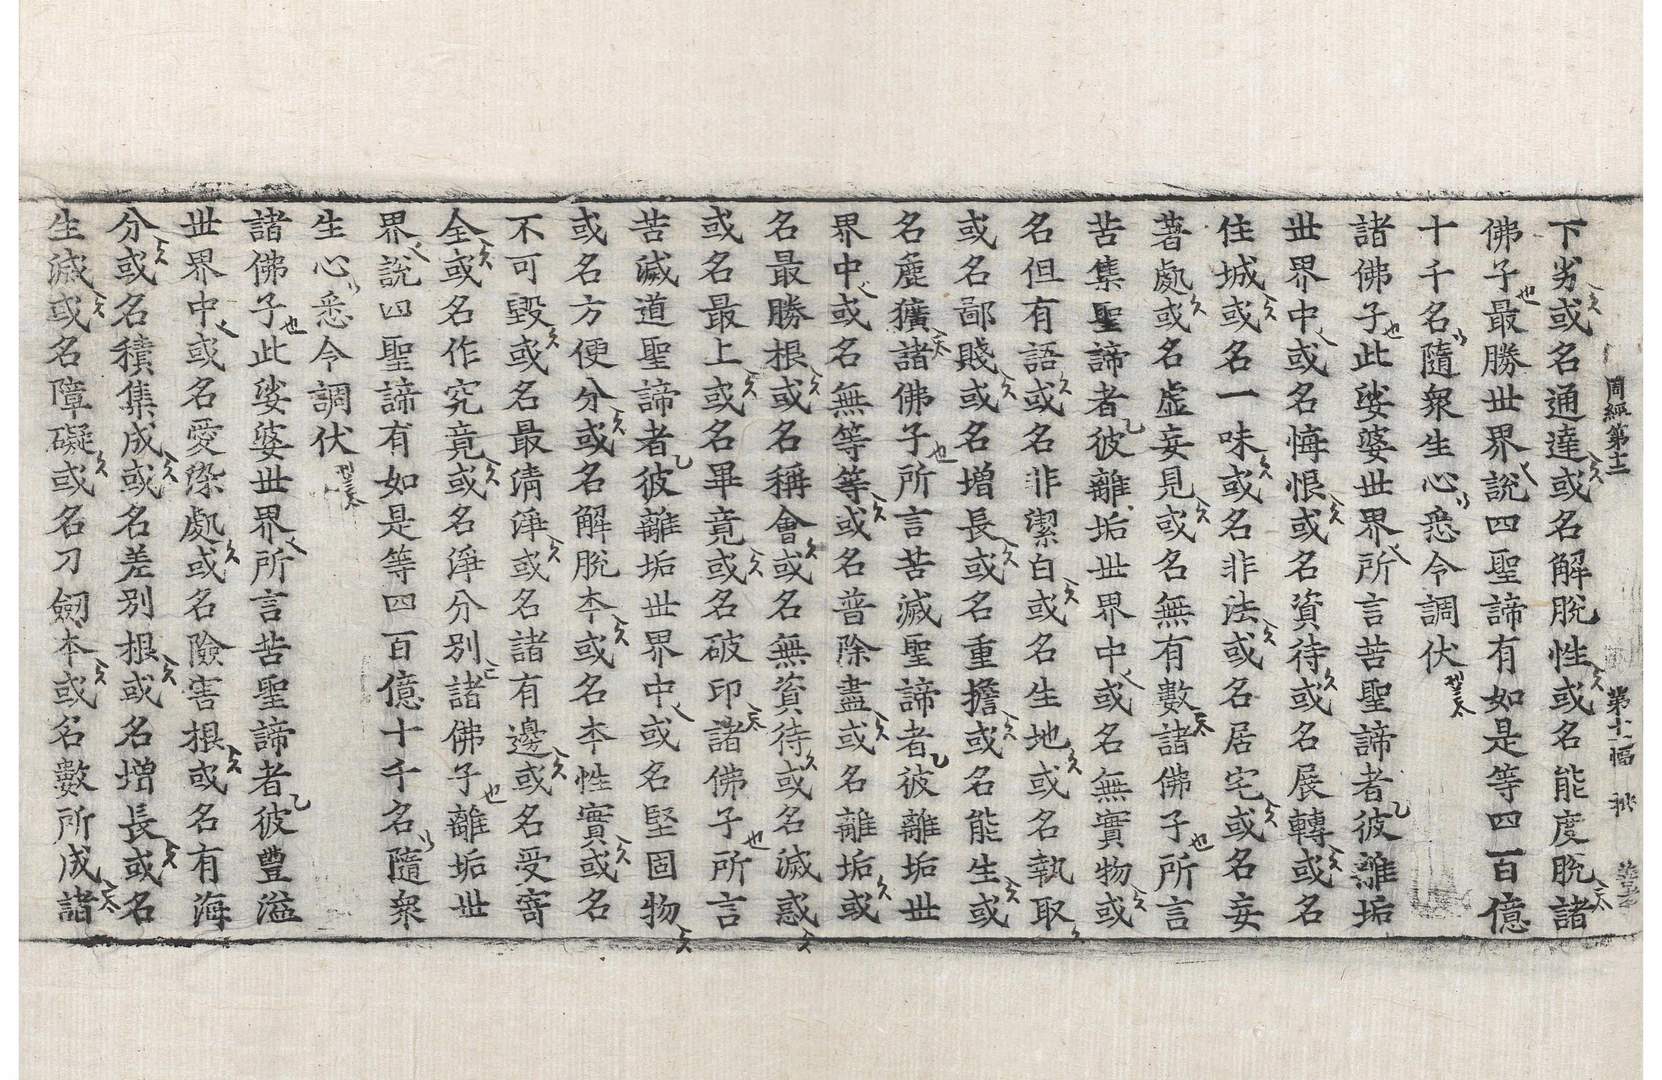 周經第十二 第十一幅
下劣或名通達或名解脫性或名能度脫諸
佛子最勝世界說四聖諦有如是等四百億
十千名隨衆生心悉令調伏
諸佛子此娑婆世界所言苦聖諦者彼離垢
世界中或名悔恨或名資待或名展轉或名
住城或名一味或名非法或名居宅或名妄
著處或名虛妄見或名無有數諸佛子所言
苦集聖諦者彼離垢世界中或名無實物或
名但有語或名非潔白或名生地或名執取
或名鄙賤或名增長或名重擔或名能生或
名麁獷諸佛子所言苦滅聖諦者彼離垢世
界中或名無等等或名普除盡或名離垢或
名最勝根或名稱會或名無資待或名滅惑
或名最上或名畢竟或名破印諸佛子所言
苦滅道聖諦者彼離垢世界中或名堅固物
或名方便分或名解脫本或名本性實或名
不可毀或名最清淨或名諸有邊或名受寄
全或名作究竟或名淨分別諸佛子離垢世
界說四聖諦有如是等四百億十千名隨衆
生心悉令調伏
諸佛子此娑婆世界所言苦聖諦者彼豐溢
世界中或名愛染處或名險害根或名有海
分或名積集成或名差別根或名增長或名
生滅或名障礙或名刀劒本或名數所成諸